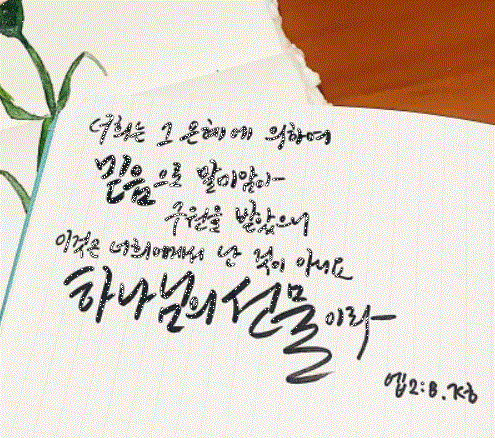 너희는 그 은혜에 의하여
믿음으로 말미암아
구원을 받았으니
이것은 너희에게서 난 것이 아니요
하나님의 선물이라
엡2:8.